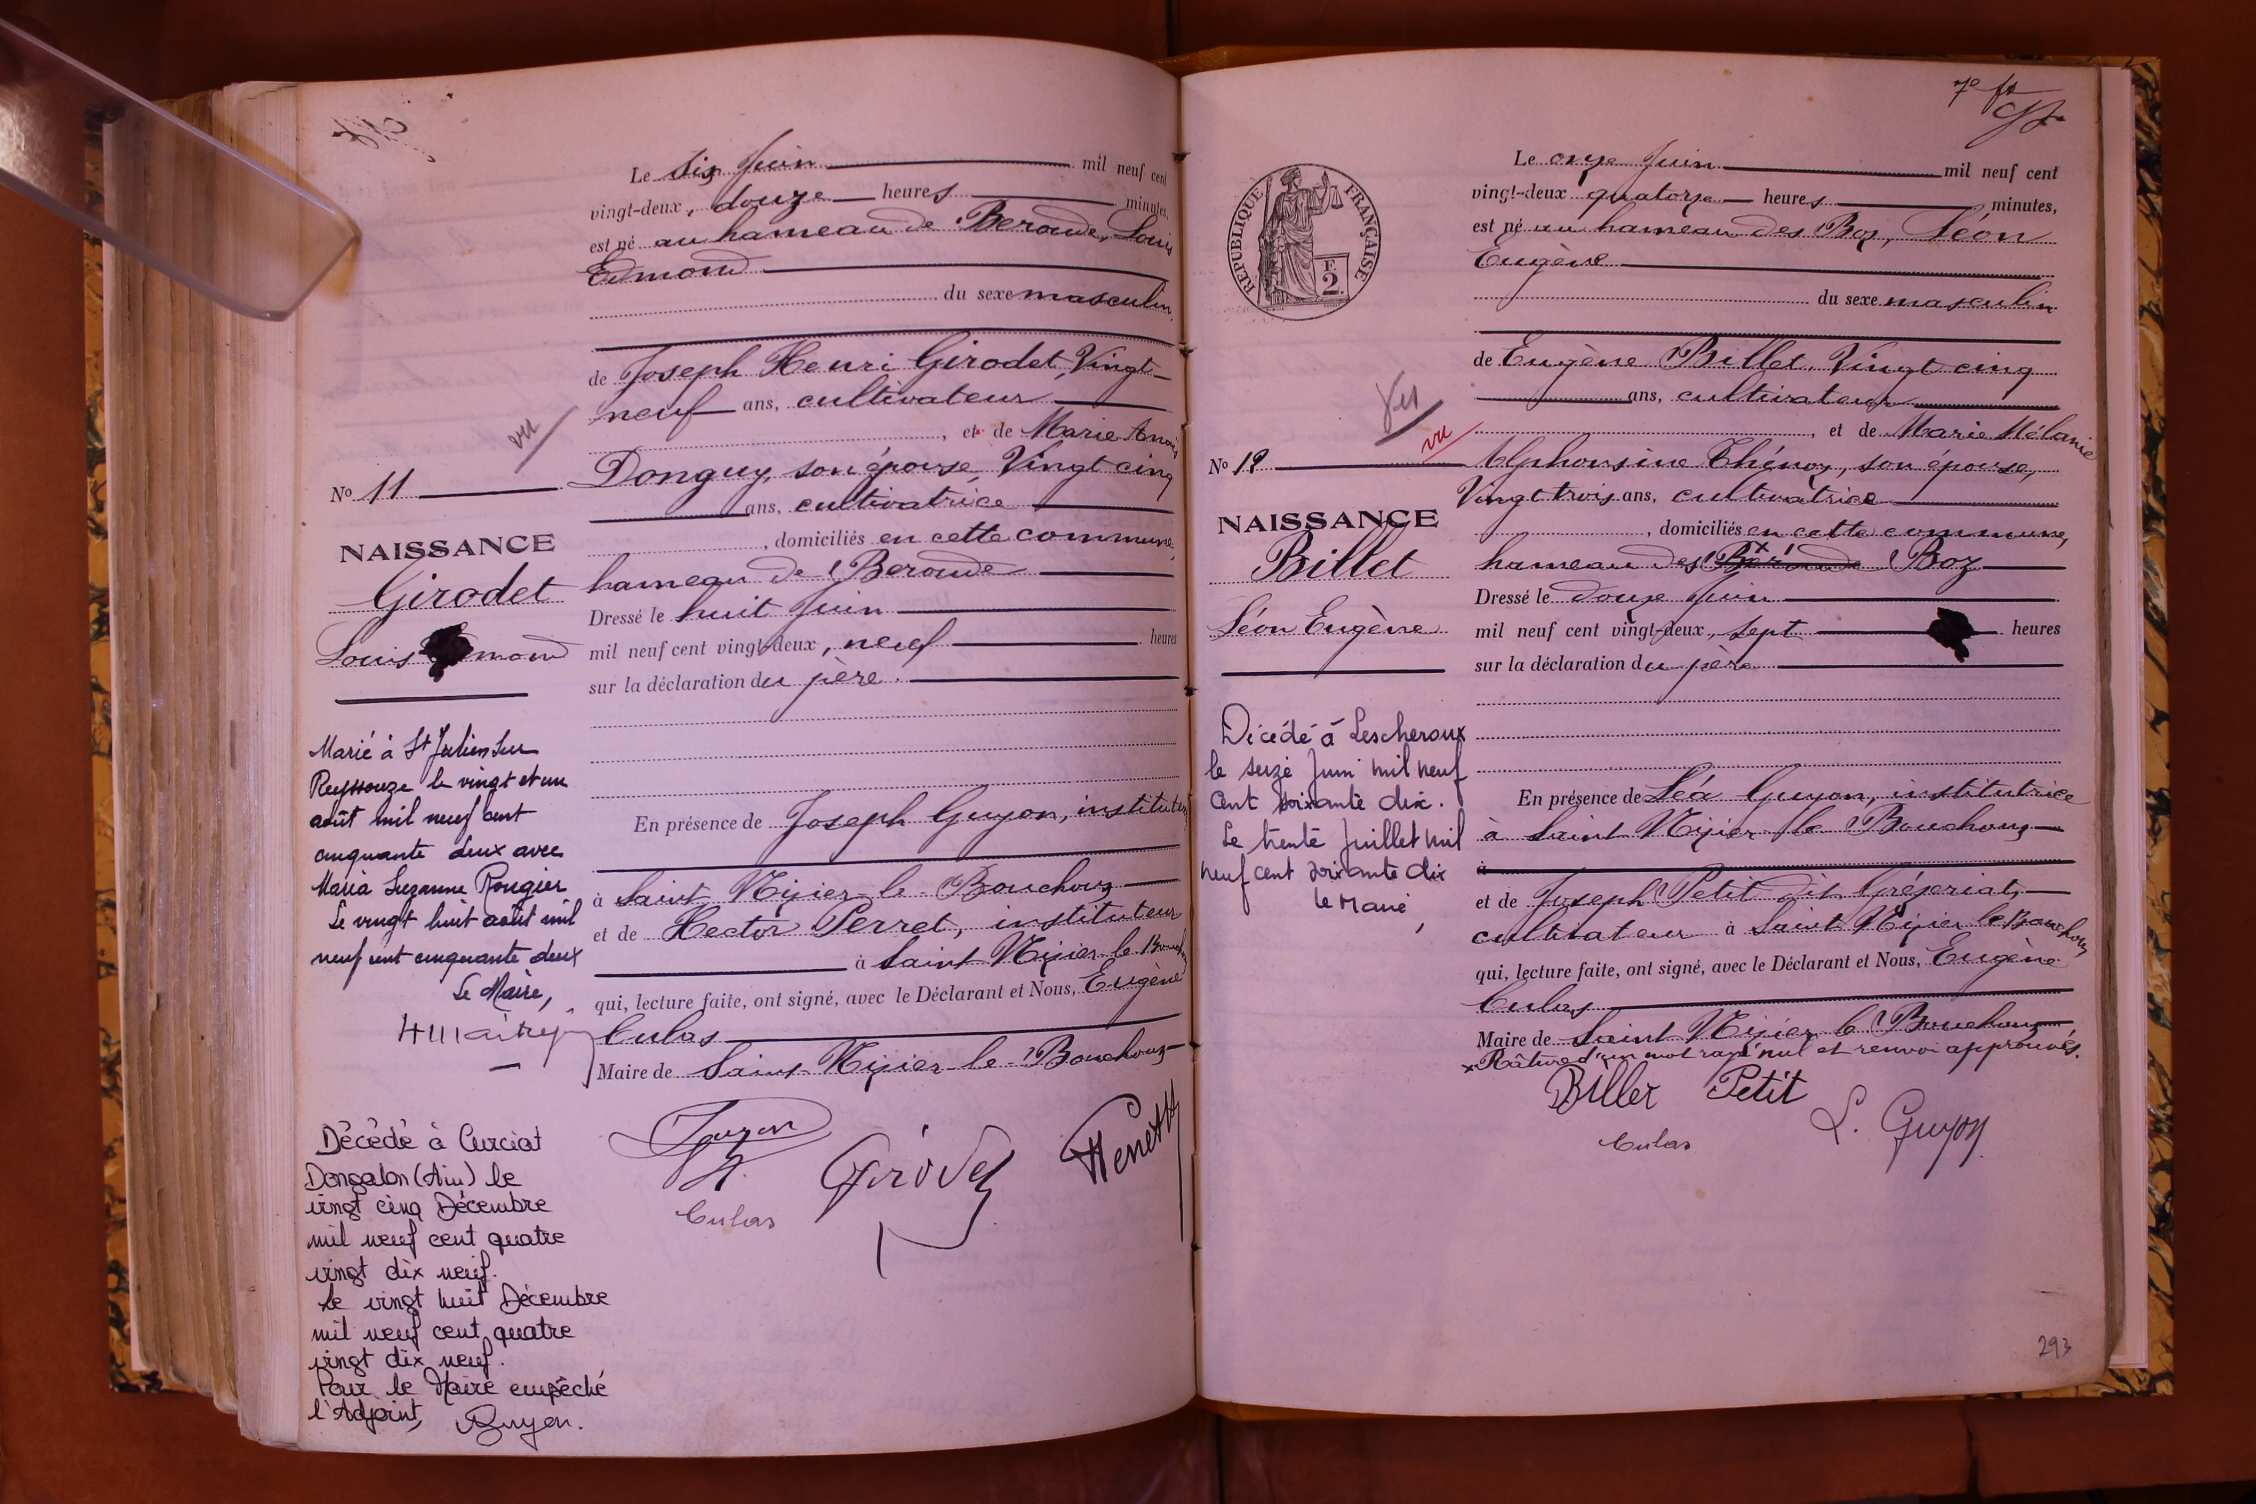 Le six Juin mil neuf cent
vingt-deux, douze heures minutes,
est né au hameau de Beroude, Louis
Edmond
du sexe masculin
de Joseph Henri Girodet, Vingt-
neuf ans, cultivateur
vu
, et de Marie Anaïs
No 11
Donguy, son épouse, Vingt cinq
ans, cultivatrice
NAISSANCE
, domiciliés en cette commune,
Girodet
hameau de Beroude
Dressé le huit Juin
Louis mond
mil neuf cent vingt-deux, neuf heures
sur la déclaration du père.
Marié à St Julien sur
Reyssouze le vingt et un
août mil neuf cent
cinquante deux avec
Maria Suzanne Rougier
Le vingt huit août mil
neuf cent cinquante deux
Le Maire,
En présence de Joseph Guyon, instituteur
à Saint Nizier-le-Bouchoux
et de Hector Perret, instituteur
à Saint Nizier-le-Bouchoux
qui, lecture faite, ont signé, avec le Déclarant et Nous, Eugène
Culas
Maire de Saint-Nizier-le-Bouchoux
Guyon
Girodet
Culas
Décédé à Curciat
Dongalon (Ain) le
vingt cinq Décembre
mil neuf cent quatre
vingt dix neuf.
Le vingt huit Décembre
mil neuf cent quatre
vingt dix neuf.
Pour le Maire empêché
l'Adjoint, Guyon.
RÉPUBLIQUE FRANÇAISE
F.
2.
Le onze Juin mil neuf cent
vingt-deux quatorze heures minutes,
est né au hameau des Boz, Léon
Eugène
du sexe masculin
de Eugène Billet, Vingt cinq
ans, cultivateur
vu
vu
, et de Marie Mélanie
No 12
Alphonsine Thénoz, son épouse,
Vingt trois ans, cultivatrice
NAISSANCE
, domiciliés en cette commune,
Billet
hameau des Béroude Boz
Dressé le douze Juin
Léon Eugène
mil neuf cent vingt-deux, sept heures
sur la déclaration du père
Décédé à Lescheroux
le seize Juin mil neuf
cent soixante dix.
Le trente Juillet mil
neuf cent soixante dix
le Maire,
En présence de Léa Guyon, institutrice
à Saint Nizier le Bouchoux
à
et de Joseph Petit dit Gréjeriat,
cultivateur à Saint Nizier le Bouchoux
qui, lecture faite, ont signé, avec le Déclarant et Nous, Eugène
Culas
Maire de Saint Nizier le Bouchoux
x Râture d'un mot rayé nul et renvoi approuvés.
Billet Petit
Culas
L. Guyon
293